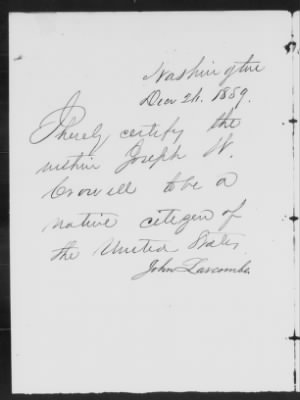 Washington
Decr 24. 1859.
I hereby certify the
within Joseph W.
Crowell to be a
native citizen of
the United States
John Larcombe.